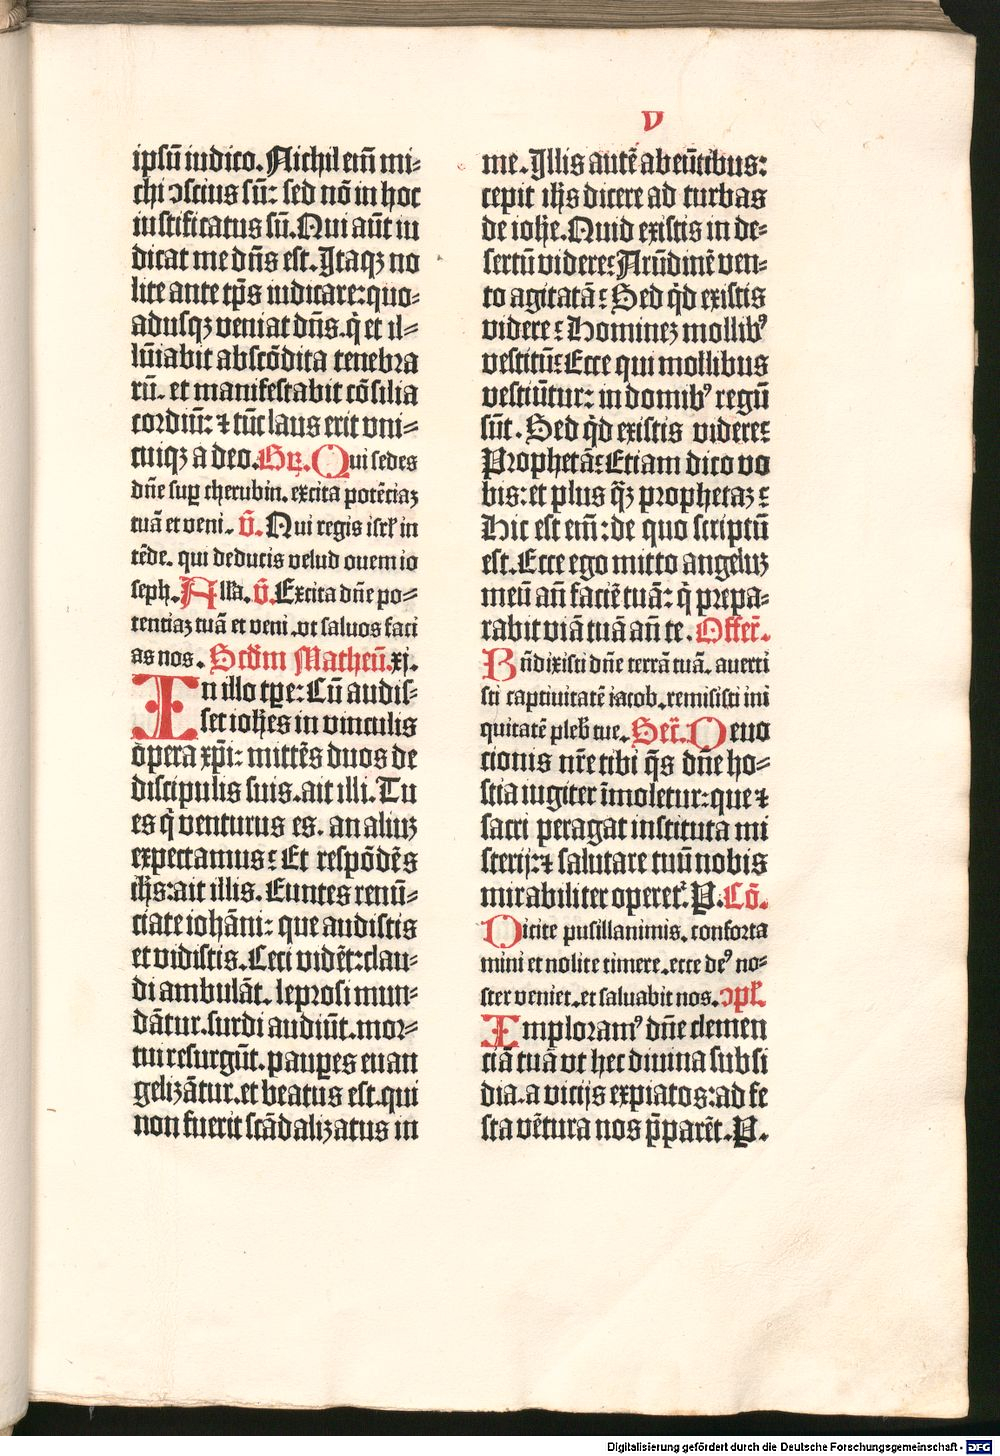 v
ipsū iudico. Nichil eim̄ mi⸗
chi ↄscius sū: sed nō in hoc
iustificatus sū. Qui aūt iu
dicat me dn̄s est. Itaqꝫ no
lite ante tp̄s iudicare: quo⸗
adusqꝫ veniat dn̄s. q̇ et il⸗
lūiabit abscōdita tenebra
rū. et manifestabit cōsilia
cordiū: ⁊ tūc laus erit vni⸗
cuiqꝫ a deo. Gr̄. Qui sedes
dn̄e suꝑ cherubin. excita potētiaꝫ
tuā et veni. v̄. Qui regis isrl̄ in
tēde. qui deducis velud ouem io
seph. All̄a. v̄. Excita dn̄e po⸗
tentiaꝫ tuā et veni. vt saluos faci
as nos. Scd̄m Matheū. xj.
In illo tꝑe: Cū audis⸗
set ioh̄es in vinculis
opera xp̄i: mittēs duos de
discipulis suis. ait illi. Tu
es q̇ venturus es. an aliuꝫ
expectamus? Et respōdēs
ih̄s: ait illis. Euntes renū⸗
ciate iohāni: que audistis
et vidistis. Ceci vidēt: clau⸗
di ambulāt. leprosi mun⸗
dātur. surdi audiūt. mor⸗
tui resurgūt. pauꝑes euan
gelizātur. et beatus est. qui
non fuerit scādalizatus in
me. Illis autē abeūtibus:
cepit ih̄s dicere ad turbas
de ioh̄e. Quid existis in de⸗
sertū videre? Arūdinē ven⸗
to agitatā? Sed qd̄ existis
videre? Homineꝫ mollibꝰ
vestitū? Ecce qui mollibus
vestiūtur: in domibꝰ regū
sūt. Sed qd̄ existis videre?
Prophetā? Etiam dico vo
bis: et plus q̄ꝫ prophetaꝫ?
Hic est eim̄: de quo scriptū
est. Ecce ego mitto angeluꝫ
meū an̄ faciē tuā: q̇ prepa⸗
rabit viā tuā an̄ te. Offer̄.
Bn̄dixisti dn̄e terrā tuā. auerti
sti captiuitatē iacob. remisisti ini
quitatē pleb̄ tue. Secr̄. Deuo
tionis nr̄e tibi q̄s dn̄e ho⸗
stia iugiter īmoletur: que ⁊
sacri peragat instituta mi
sterij: ⁊ salutare tuū nobis
mirabiliter operet᷑. P. Cō.
Dicite pusillanimis. conforta
mini et nolite timere. ecce deꝰ no⸗
ster veniet. et saluabit nos. ↄpl̄.
Imploramꝰ dn̄e clemen
ciā tuā vt hec diuina subsi
dia. a vicijs expiatos: ad fe
sta vētura nos p̄parēt. P.
Digitalisierung gefördert durch die Deutsche Forschungsgemeinschaft - DFG